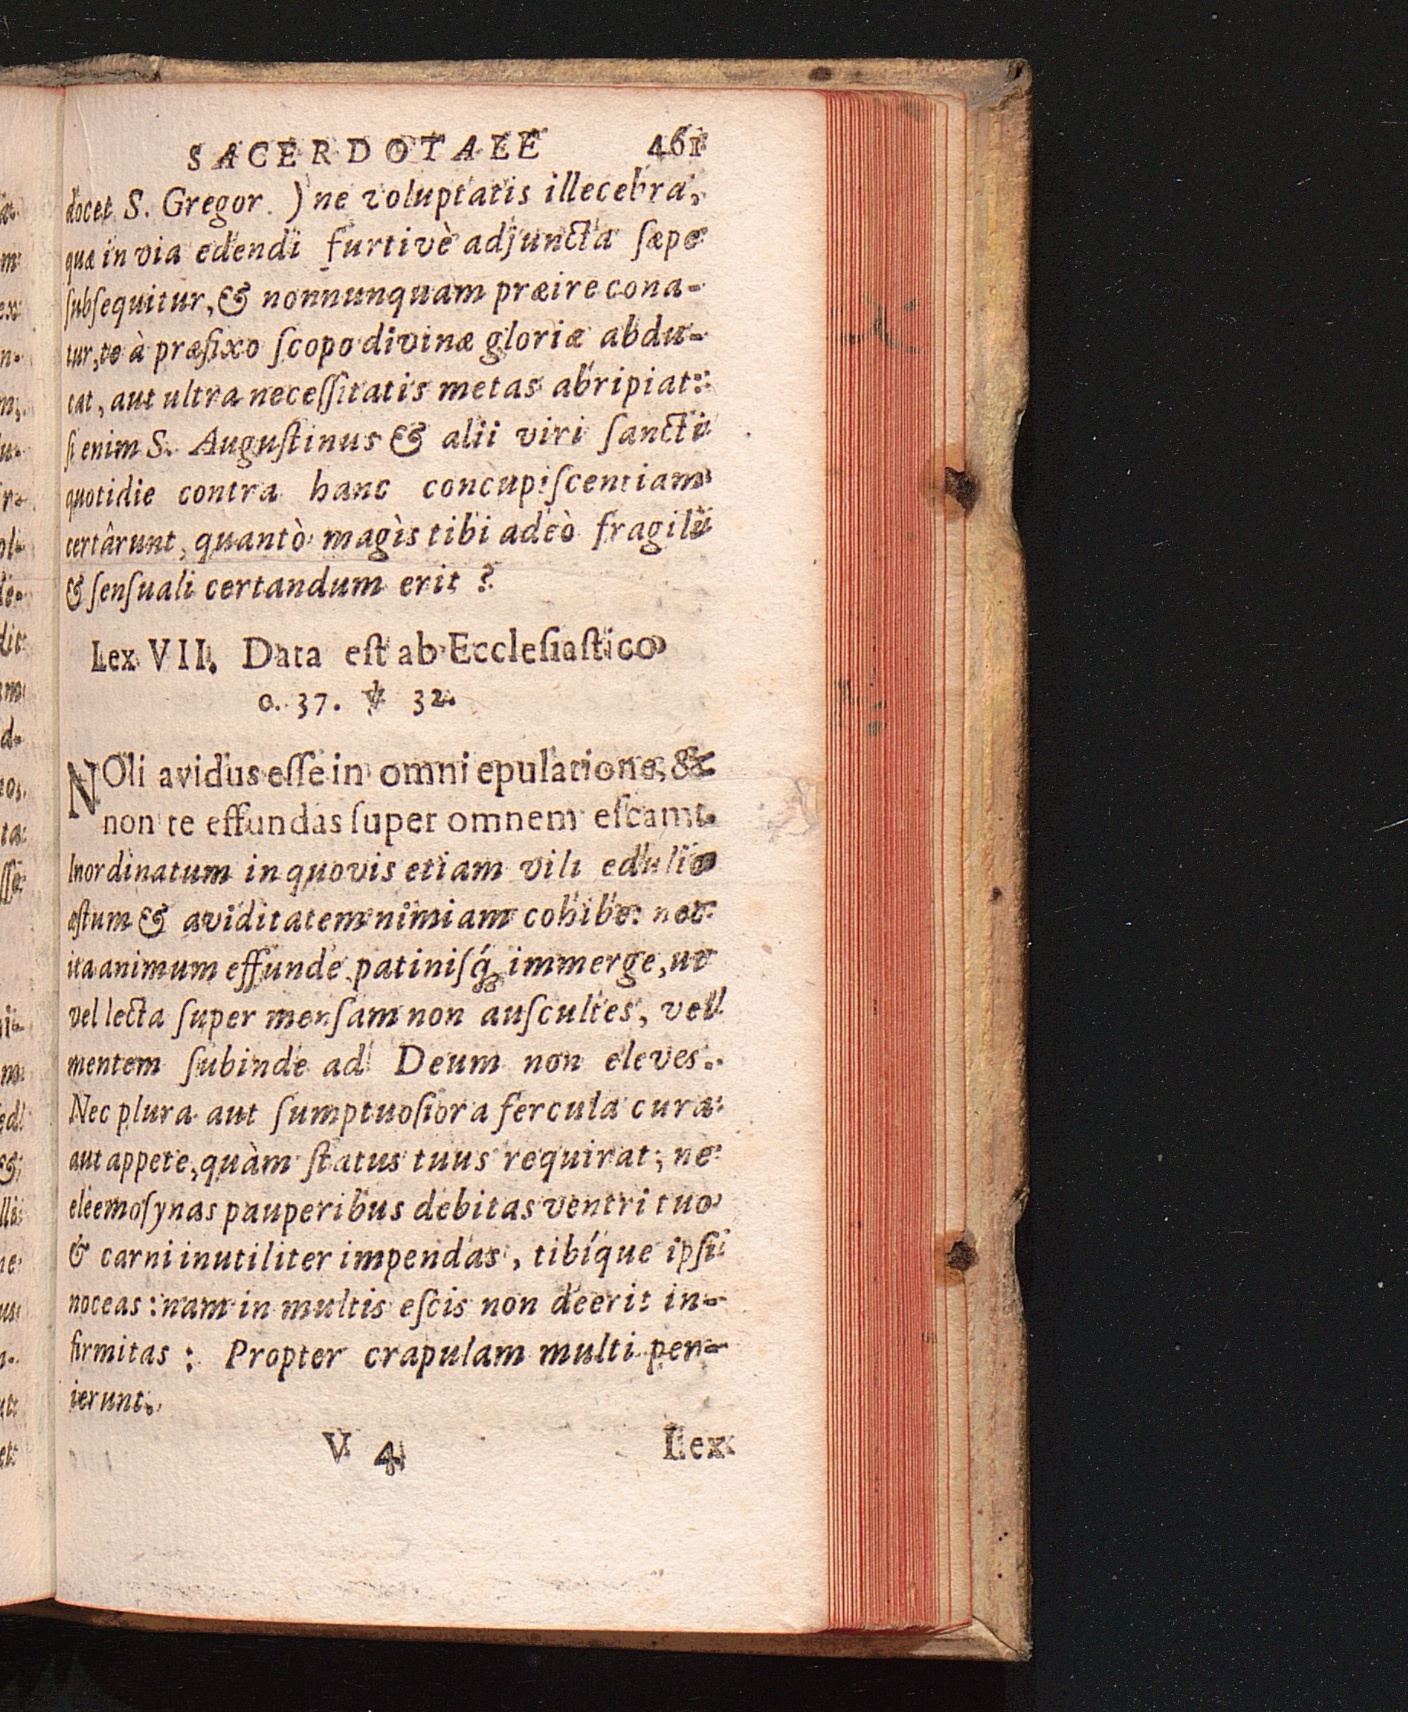 SACERDOTALE 461
docet S. Gregor. ) ne voluptatis illecebra,
quæ in via edendi furtivè adjuncta ſæpe
ſubſequitur, & nonnunquam præire cona-
tur, te à præfixo ſcopo divinæ gloriæ abdu-
cat, aut ultra neceſſitatis metas abripiat:
ſi enim S. Auguſtinus & alii viri ſancti
quotidie contra hanc concupiſcentiam
certârunt, quantò magìs tibi adeò fragili
& ſenſuali certandum erit ?
Lex VII. Data eſt ab Eccleſiaſtico
c. 37. ℣ 32.
NOli avidus eſſe in omni epulatione, &
non te effundas ſuper omnem eſcam.
Inordinatum in quovis etiam vili edulio
æſtum & aviditatem nimiam cohibe: nec
ita animum effunde patiniſq́; immerge, ut
vel lecta ſuper menſam non auſcultes, vel
mentem ſubinde ad Deum non eleves.
Nec plura aut ſumptuoſiora fercula cura
aut appete, quàm ſtatus tuus requirat; ne
eleemoſynas pauperibus debitas ventri tuo
& carni inutiliter impendas, tibíque ipſi
noceas: nam in multis eſcis non deerit in-
firmitas : Propter crapulam multi per-
ierunt.
V 4 Lex